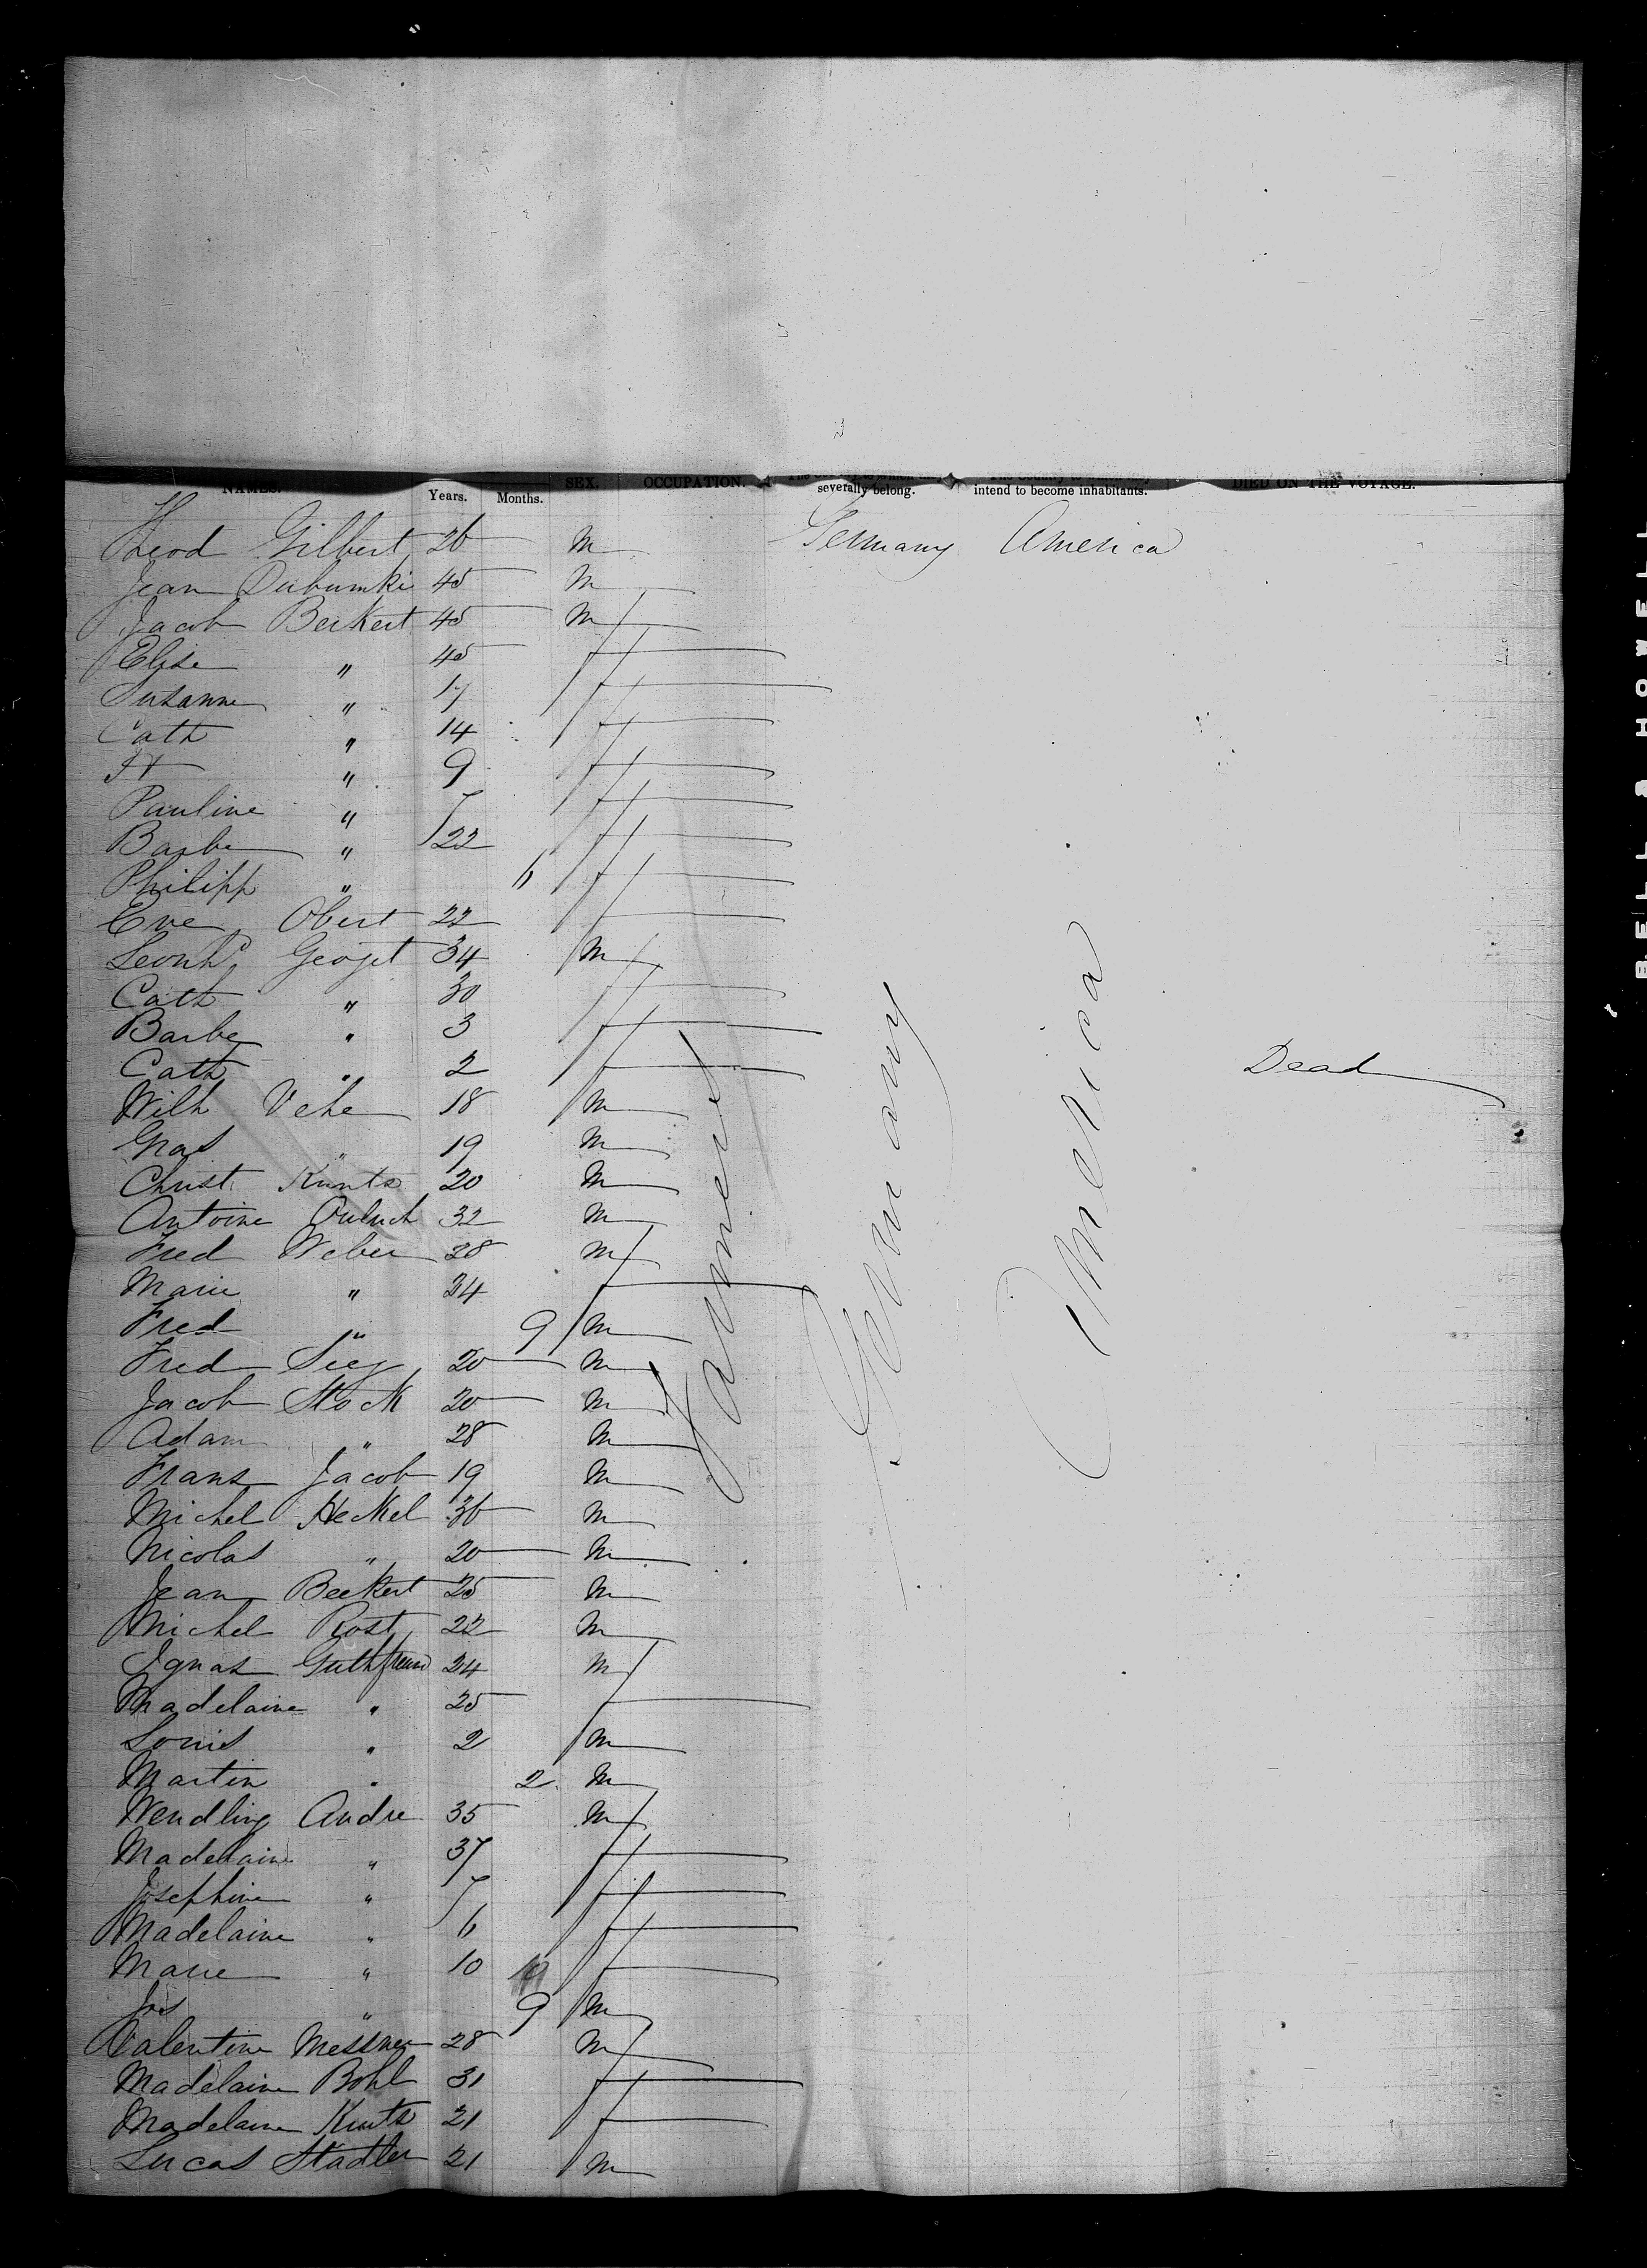 NAMES. Years. Months. SEX. OCCUPATION. severally belong. intend to become inhabitants. DIED ON THE VOYAGE.
Theod Gilbert 26 m Germany America
Jean 45 m
Jacob Beikert 45 m
Elise " 45 f
Susanne " 17 f
Cath " 14 f
" 9 f
Pauline " 7 f
Barbe " 22 f
Philipp " 6 f
Eve Obert 22 f
Leonhd Geojet 34 m
Cath " 30 f
Barbe " 3 f
Cath " 2 f Dead
Wilh Vehe 18 m
" 19 m
Christ Kunts 20 m
Antoine 32 m
Fred Weber 28 m
Marie " 24 f
Fred " 9 m
Fred 20 m
Jacob Stock 20 m
Adam " 28 m
Frans Jacob 19 m
Michel Heckel 36 m
Nicolas " 20 m
Jean Beckert 25 m
Michel Rost 22 m
Ignas Guthfreund 24 m
Madelaine " 25 f
Louis " 2 m
Martin " 2 m
Wendling Andre 35 m
Madelaine " 37 f
Josephine " 7 f
Madelaine " 6 f
Marie " 10 f
Jos " 9 m
Valentine Messner 28 m
Madelaine Bohl 31 f
Madelaine Kunts 21 f
Lucas Stadler 21 m
farmers
Germany
America
BELL & HOWELL